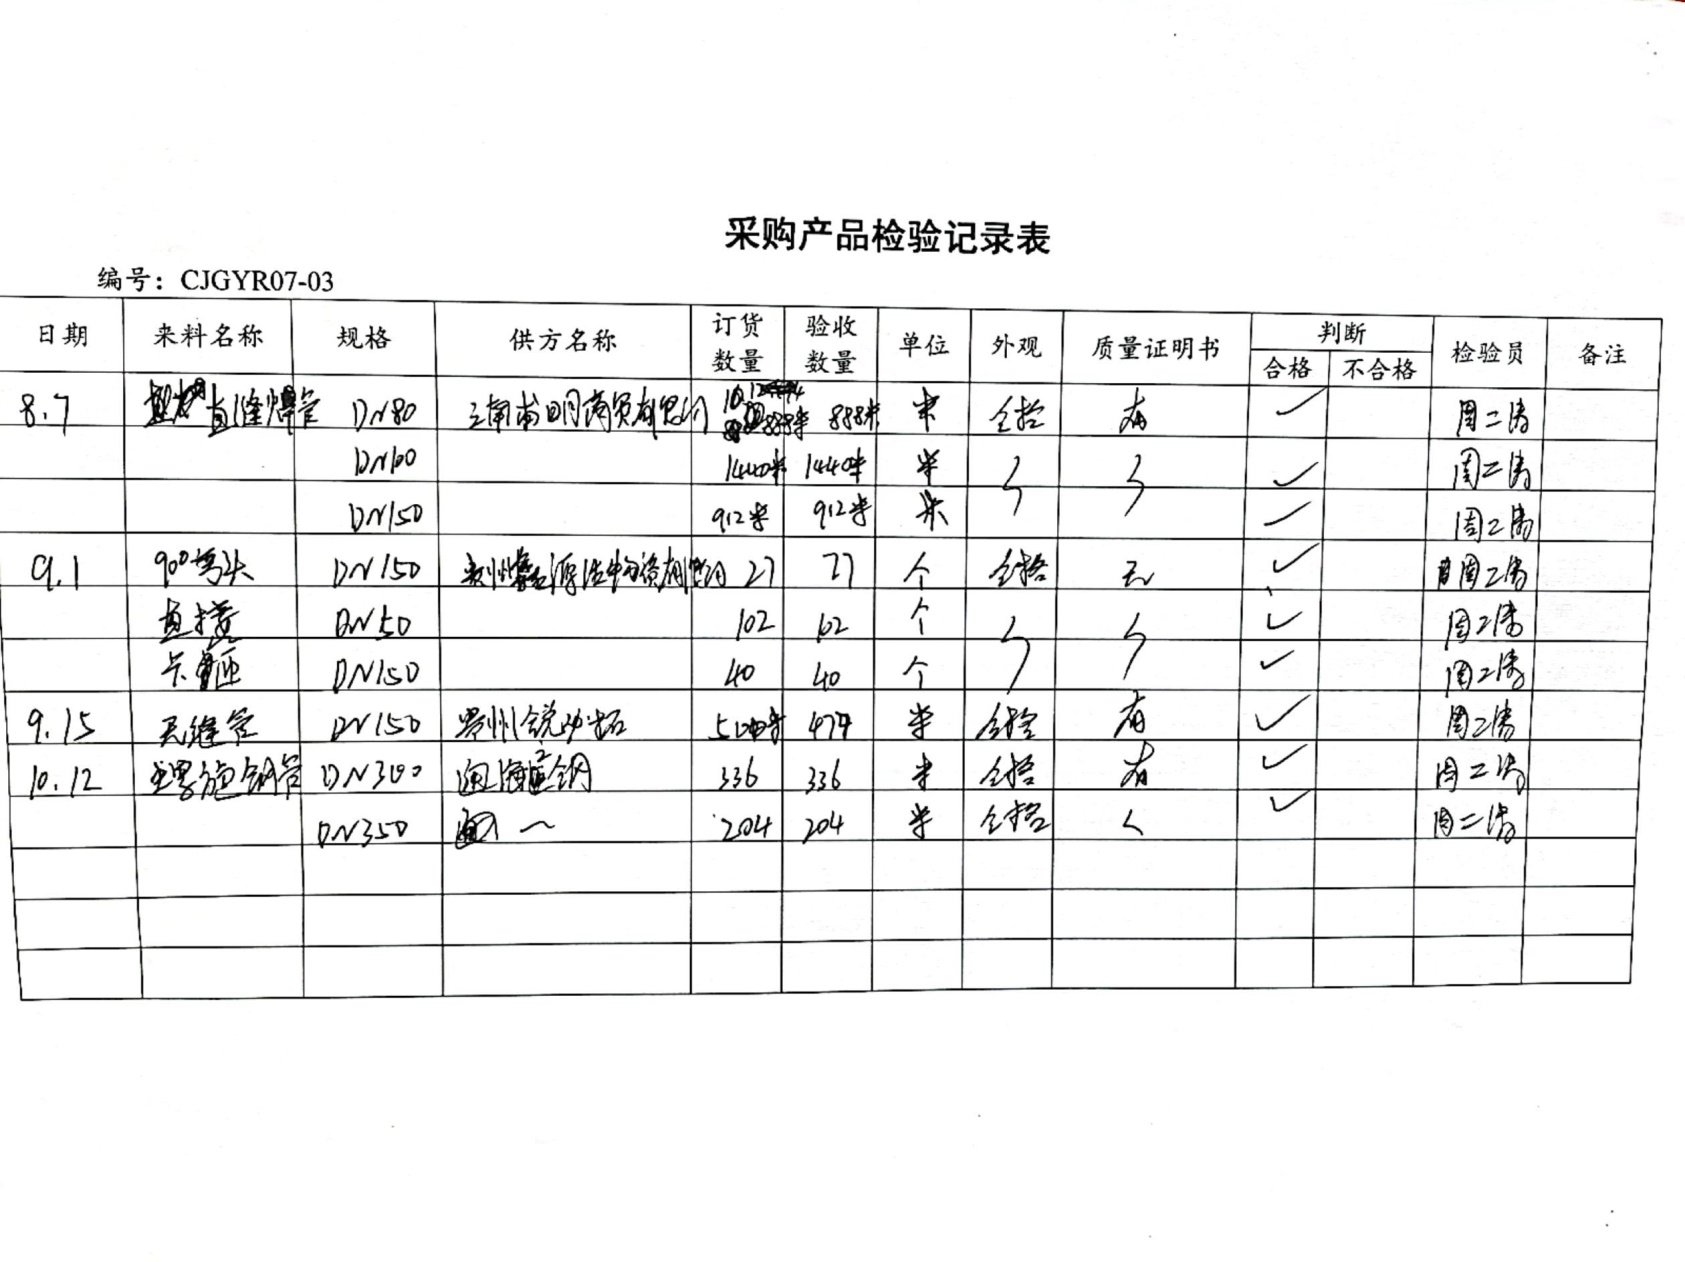 采购产品检验记录表
编号：CJGYR07-03
日期 来料名称 规格 供方名称 订货数量 验收数量 单位 外观 质量证明书 判断 合格 不合格 检验员 备注
8.7 直缝焊管 DN80 888米 888米 米 合格 有 ✓ 周二涛
DN100 1440米 1440米 米 ✓ 周二涛
DN150 912米 912米 米 ✓ 周二涛
9.1 90°弯头 DN150 27 27 个 合格 无 ✓ 周二涛
直接 DN150 102 102 个 ✓ 周二涛
卡 DN150 40 40 个 ✓ 周二涛
9.15 无缝管 DN150 贵州锐 479 米 合格 有 ✓ 周二涛
10.12 螺旋钢管 DN300 336 336 米 合格 有 ✓ 周二涛
DN350 204 204 米 合格 ✓ 周二涛